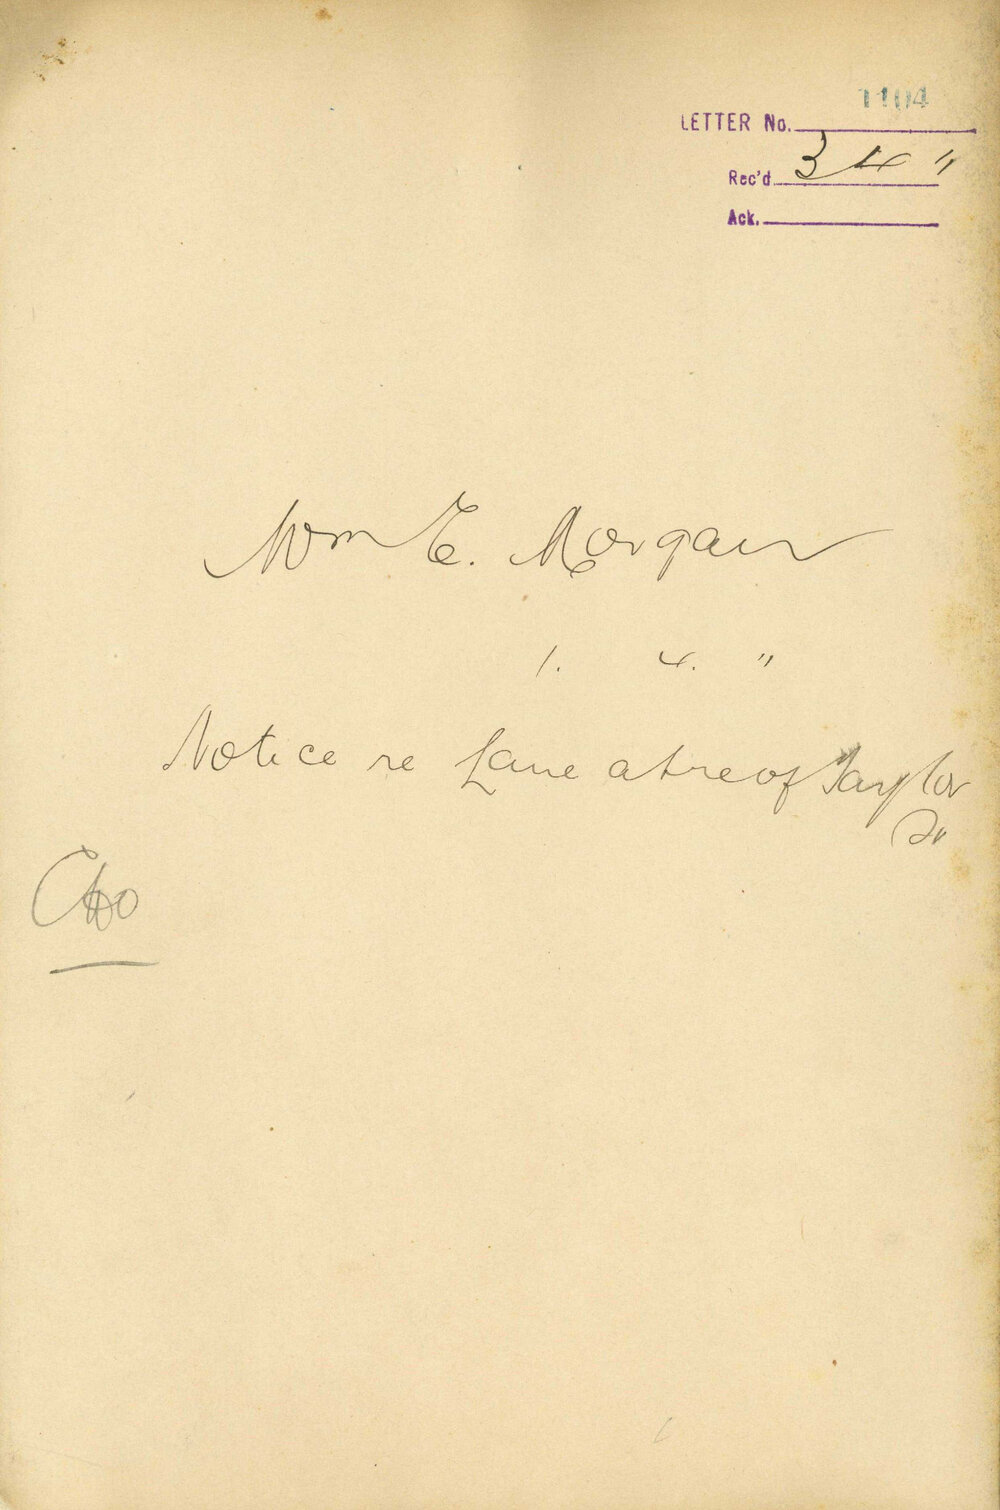 1104
LETTER No.
Rec'd 3 4 "
Ack.
Wm E. Morgan
1. 4. "
Notice re Lane at re of Taylor
St